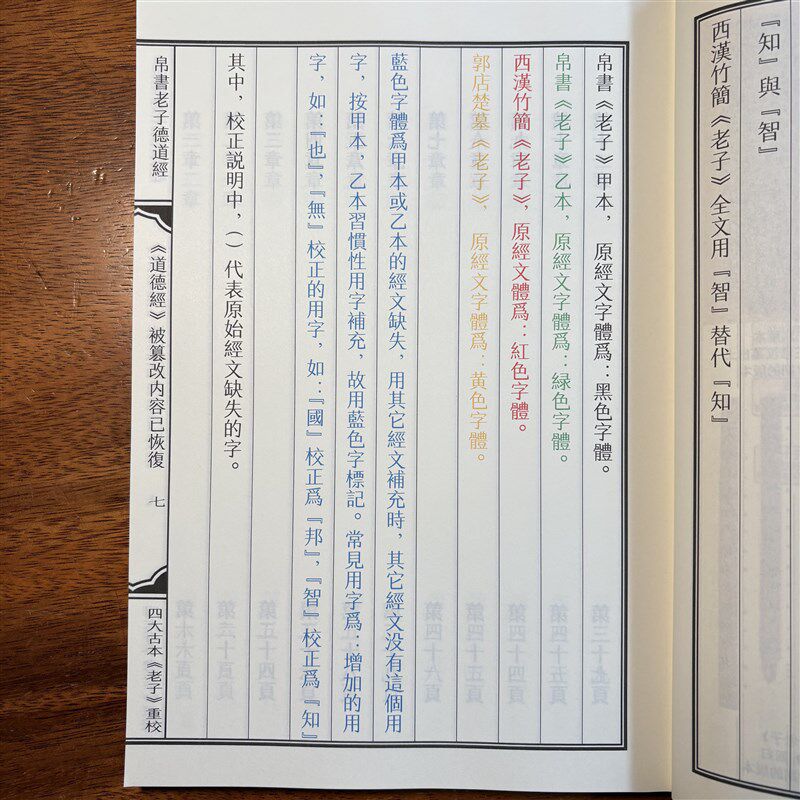 『知』與『智』
西漢竹簡《老子》全文用『智』替代『知』
帛書《老子》甲本，原經文字體爲：黑色字體。
帛書《老子》乙本，原經文字體爲：緑色字體。
西漢竹簡《老子》，原經文體爲：紅色字體。
郭店楚墓《老子》，原經文字體爲：黄色字體。
藍色字體爲甲本或乙本的經文缺失，用其它經文補充時，其它經文没有這個用
字，按甲本，乙本習慣性用字補充，故用藍色字標記。常見用字爲：增加的用
字，如：『也』，『無』校正的用字，如：『國』校正爲『邦』，『智』校正爲『知』
其中，校正説明中，（）代表原始經文缺失的字。
帛書老子德道經
《道德經》被篡改内容已恢復
七
四大古本《老子》重校